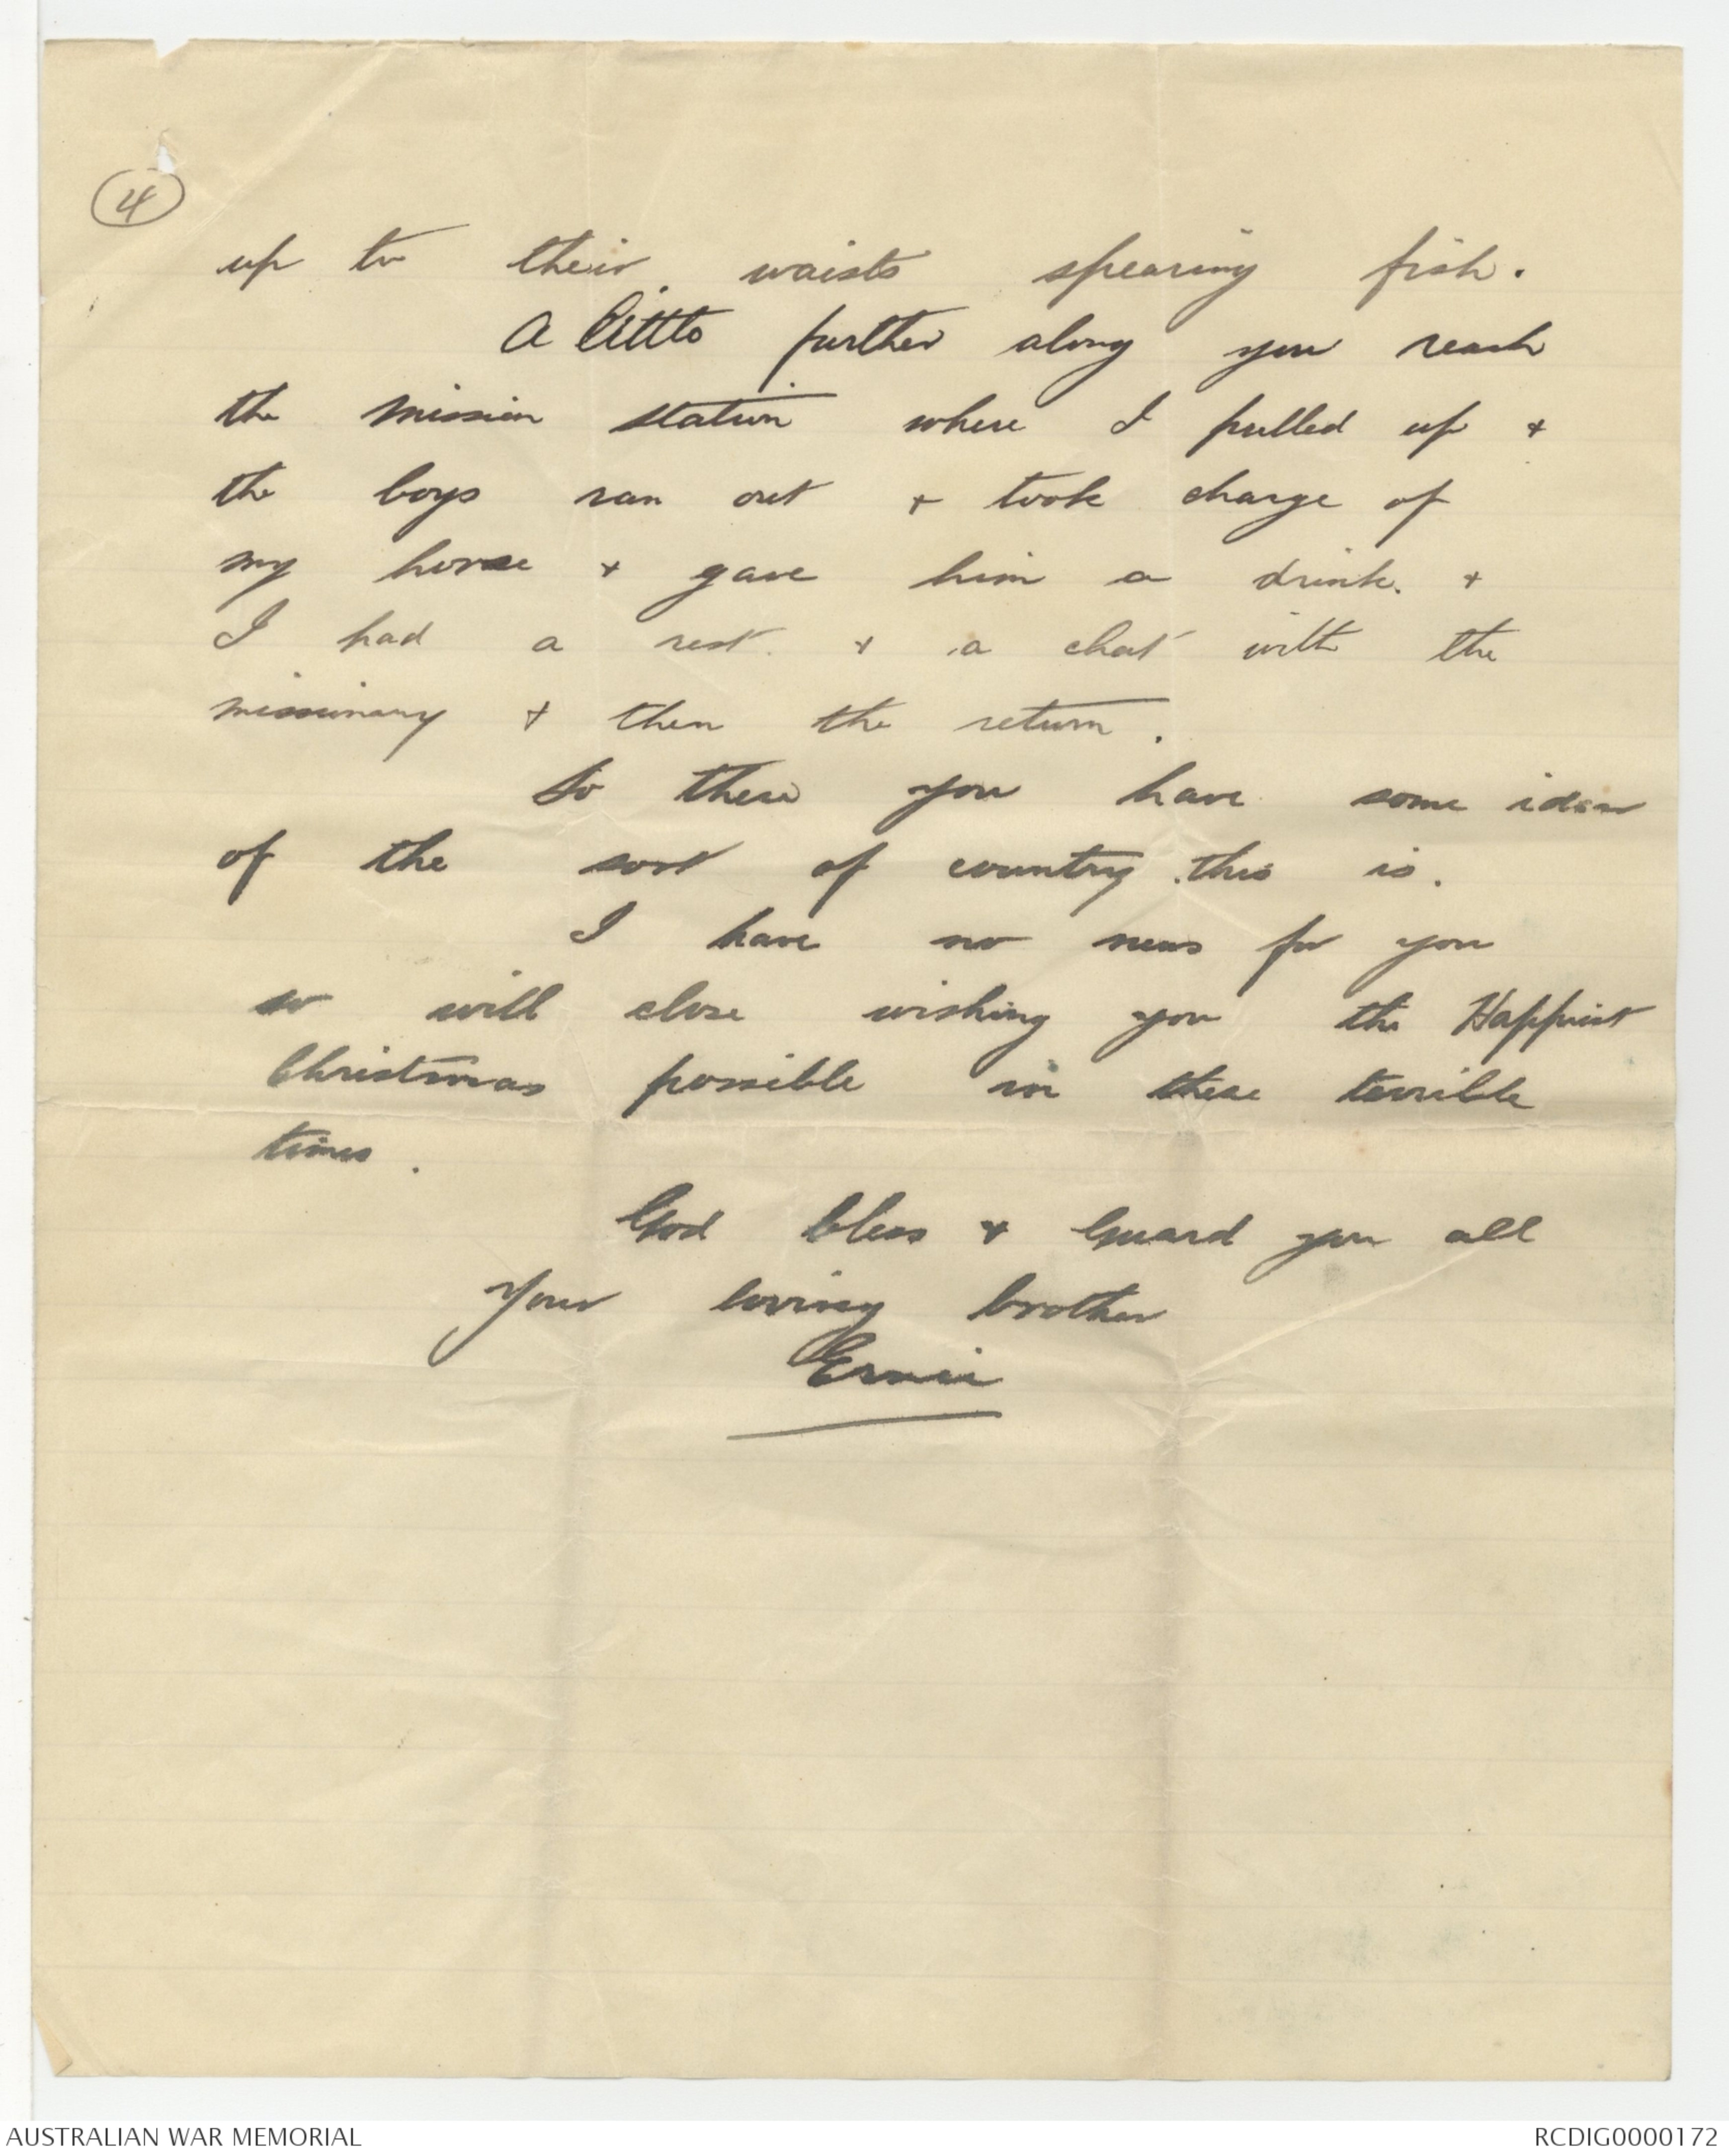 4
up to their waists spearing fish.
A little further along you reach
the mission station where I pulled up +
the boys ran out + took charge of
my horse + gave him a drink. +
I had a rest. + a chat with the
missionary + then the return.
So there you have some idea
of the sort of country this is.
I have no news for you
so will close wishing you the Happiest
Christmas possible in these terrible
times.
God bless + Guard you all
Your loving brother
Ernie
AUSTRALIAN WAR MEMORIAL
RCDIG0000172